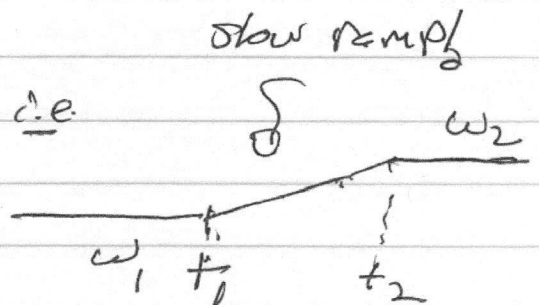 slow ramp
i.e.
ω₂
ω₁ t₁ t₂